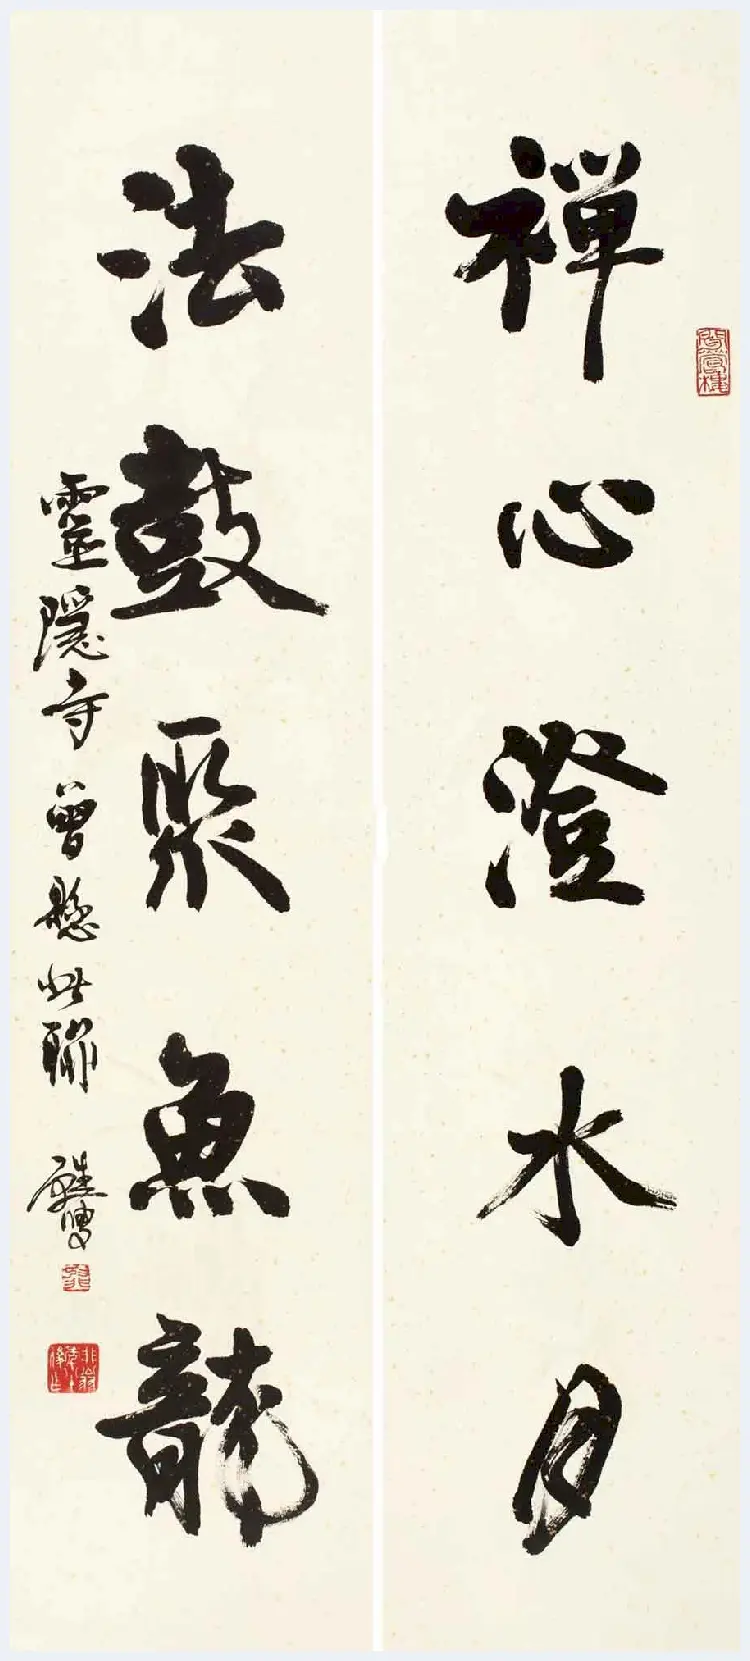 禅心澄水月
法鼓聚魚龍
靈隱寺曾懸此聯